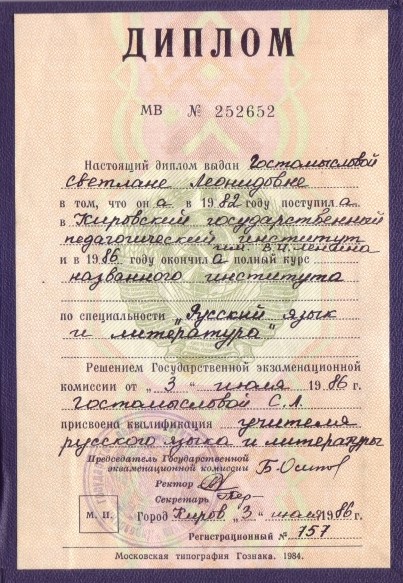 ДИПЛОМ
МВ № 252652
Настоящий диплом выдан Гостомысловой
Светлане Леонидовне
в том, что он а в 1982 году поступил а
в Кировский государственный
педагогический институт им. В.И. Ленина
и в 1986 году окончил а полный курс
названного института
по специальности „Русский язык
и литература"
Решением Государственной экзаменационной
комиссии от „3" июля 1986 г.
Гостомысловой С.Л.
присвоена квалификация учителя
русского языка и литературы
Председатель Государственной
экзаменационной комиссии
Ректор
Секретарь
М. П. Город Киров „3" июля 1986 г.
Регистрационный № 757
Московская типография Гознака. 1984.